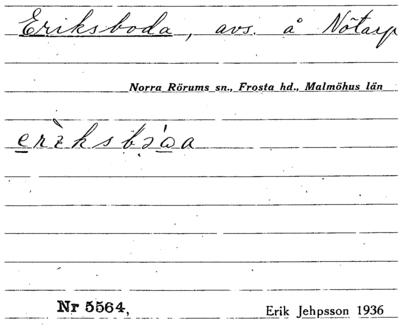 Eriksboda, avs. å Nötarp
Norra Rörums sn., Frosta hd., Malmöhus län
Nr 5564,
Erik Jehpsson 1936